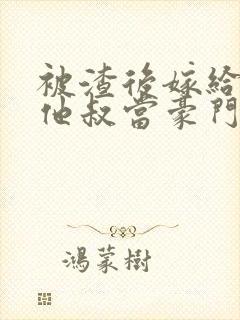 被渣後嫁給
他叔當豪門
鴻蒙樹